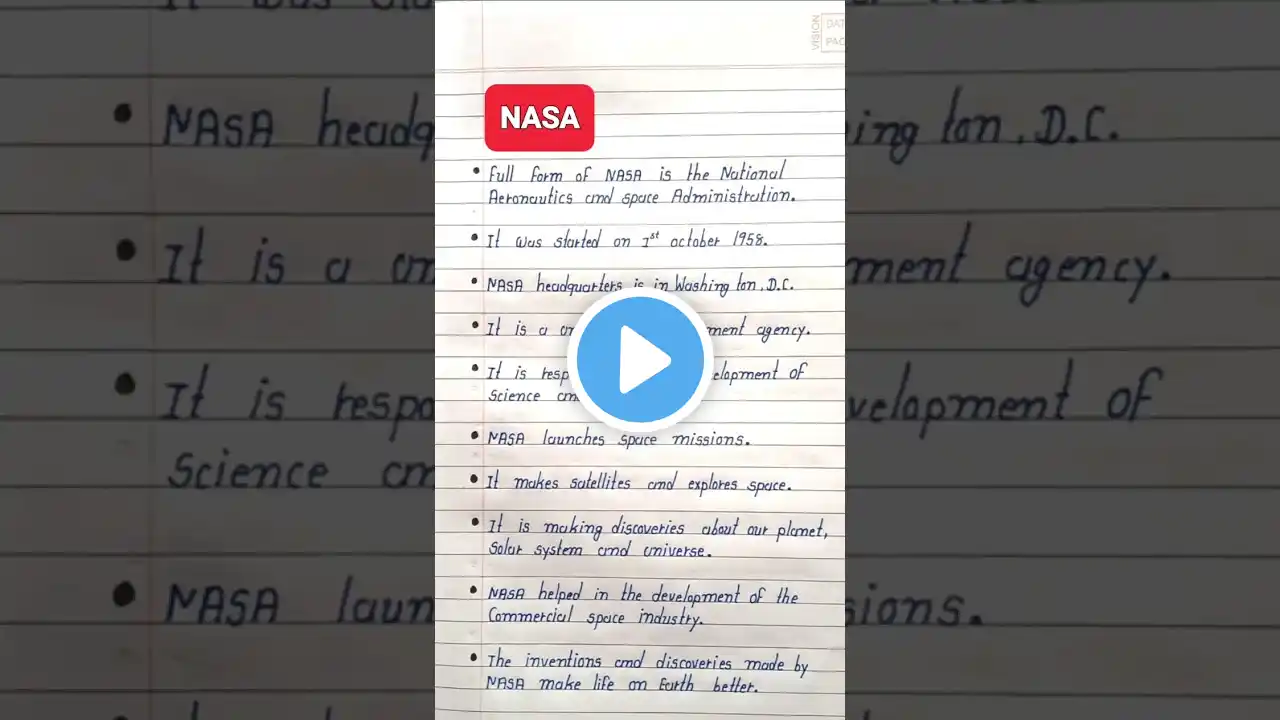 VISION
DAT
PAG
NASA
• Full form of NASA is the National
Aeronautics and space Administration.
• It was started on 1st october 1958.
• NASA headquarters is in Washing ton, D.C.
• It is a
ment agency.
• It is resp
elopment of
Science
• NASA launches space missions.
• It makes satellites and explores space.
• It is making discoveries about our planet,
Solar system and universe.
• NASA helped in the development of the
Commercial space industry.
• The inventions and discoveries made by
NASA make life on Earth better.
• NASA headq
ing ton, D.C.
• It is a
ment agency.
• It is respo
velopment of
Science
• NASA laun
sions.